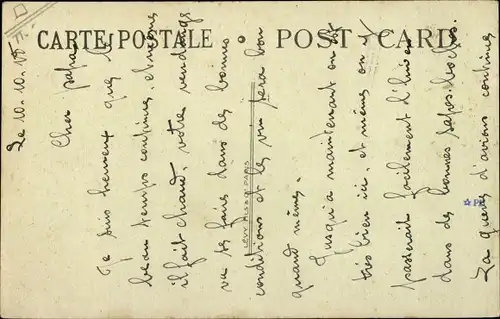 CARTE POSTALE
POST-CARD
Le 10.10.15
Cher papa
Je suis heureux que le
beau temps continue, et même
il fait chaud, votre vendange
va se faire dans des bonnes
conditions et le vin sera bon
quand même.
Jusqu'a maintenant on dit
très bien ici, et même on y
passerait facilement l'hiver
dans des bonnes
La d'avions continue
LEVY FILS & Cie PARIS